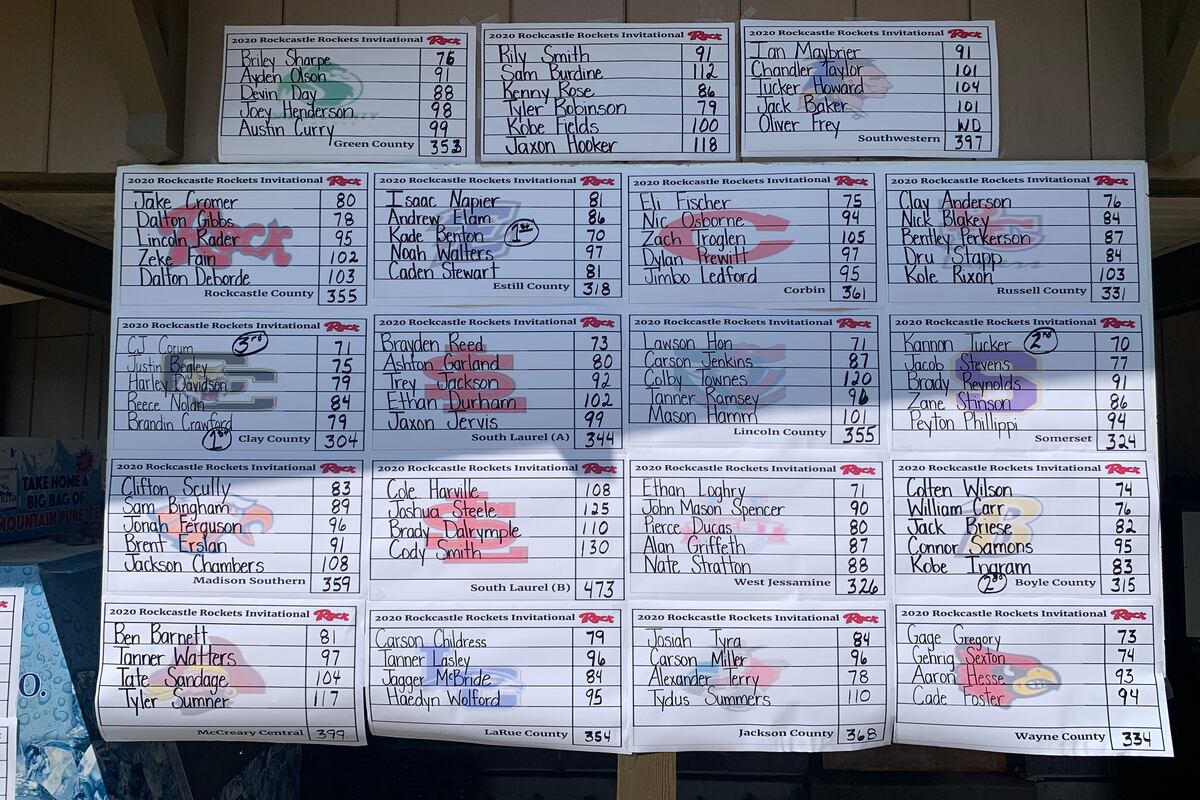 2020 Rockcastle Rockets Invitational Rock
Briley Sharpe 76
Ayden Olson 91
Devin Day 88
Joey Henderson 98
Austin Curry 99
Green County 353
2020 Rockcastle Rockets Invitational Rock
Rily Smith 91
Sam Burdine 112
Kenny Rose 86
Tyler Robinson 79
Kobe Fields 100
Jaxon Hooker 118
2020 Rockcastle Rockets Invitational Rock
Ian Maybrier 91
Chandler Taylor 101
Tucker Howard 104
Jack Baker 101
Oliver Frey WD
Southwestern 397
2020 Rockcastle Rockets Invitational Rock
Jake Cromer 80
Dalton Gibbs 78
Lincoln Rader 95
Zeke Fain 102
Dalton Deborde 103
Rockcastle County 355
2020 Rockcastle Rockets Invitational Rock
Isaac Napier 81
Andrew Elam 86
Kade Benton 1st 70
Noah Walters 97
Caden Stewart 81
Estill County 318
2020 Rockcastle Rockets Invitational Rock
Eli Fischer 75
Nic Osborne 94
Zach Troglen 105
Dylan Prewitt 97
Jimbo Ledford 95
Corbin 361
2020 Rockcastle Rockets Invitational Rock
Clay Anderson 76
Nick Blakey 84
Bentley Perkerson 87
Dru Stapp 84
Kole Rixon 103
Russell County 331
2020 Rockcastle Rockets Invitational Rock
CJ Corum 3rd 71
Justin Begley 75
Harley Davidson 79
Reece Nolan 84
Brandin Crawford 79
1st Clay County 304
2020 Rockcastle Rockets Invitational Rock
Brayden Reed 73
Ashton Garland 80
Trey Jackson 92
Ethan Durham 102
Jaxon Jervis 99
South Laurel (A) 344
2020 Rockcastle Rockets Invitational Rock
Lawson Hon 71
Carson Jenkins 87
Colby Townes 120
Tanner Ramsey 96
Mason Hamm 101
Lincoln County 355
2020 Rockcastle Rockets Invitational Rock
Kannon Tucker 2nd 70
Jacob Stevens 77
Brady Reynolds 91
Zane Stinson 86
Peyton Phillippi 94
Somerset 324
2020 Rockcastle Rockets Invitational Rock
Clifton Scully 83
Sam Bingham 89
Jonah Ferguson 96
Brent Erslan 91
Jackson Chambers 108
Madison Southern 359
2020 Rockcastle Rockets Invitational Rock
Cole Harville 108
Joshua Steele 125
Brady Dalrymple 110
Cody Smith 130
South Laurel (B) 473
2020 Rockcastle Rockets Invitational Rock
Ethan Loghry 71
John Mason Spencer 90
Pierce Ducas 80
Alan Griffeth 87
Nate Stratton 88
West Jessamine 326
2020 Rockcastle Rockets Invitational Rock
Colten Wilson 74
William Carr 76
Jack Briese 82
Connor Samons 95
Kobe Ingram 83
2nd Boyle County 315
2020 Rockcastle Rockets Invitational Rock
Ben Barnett 81
Tanner Watters 97
Tate Sandage 104
Tyler Sumner 117
McCreary Central 399
2020 Rockcastle Rockets Invitational Rock
Carson Childress 79
Tanner Lasley 96
Jagger McBride 84
Haedyn Wolford 95
LaRue County 354
2020 Rockcastle Rockets Invitational Rock
Josiah Tyra 84
Carson Miller 96
Alexander Terry 78
Tydus Summers 110
Jackson County 368
2020 Rockcastle Rockets Invitational Rock
Gage Gregory 73
Gehrig Sexton 74
Aaron Hesse 93
Cade Foster 94
Wayne County 334
TAKE HOME A
BIG BAG OF
MOUNTAIN PURE ICE